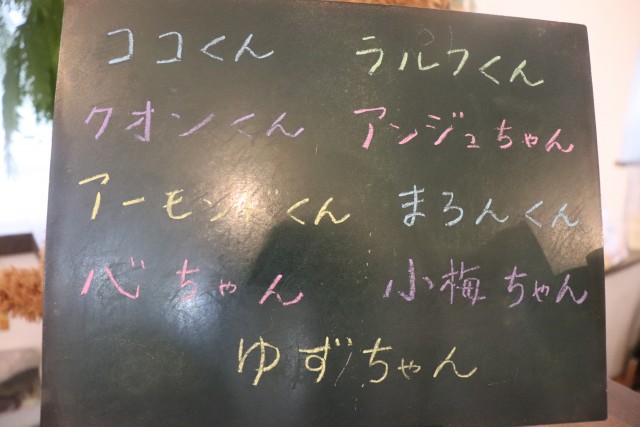 ココくん ラルフくん
クオンくん アンジュちゃん
アーモンドくん まろんくん
心ちゃん 小梅ちゃん
ゆずちゃん